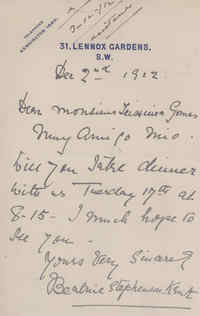 TELEPHONE
KENSINGTON
31, LENNOX GARDENS,
S.W.
Dec 2nd 1912
Dear Monsieur Teixeira Gomes
Muy Amigo Mio.
Will you take dinner
with us Tuesday 17th at
8-15- I much hope to
see you -
Yours Very Sincerely
Beatrice Stephenson